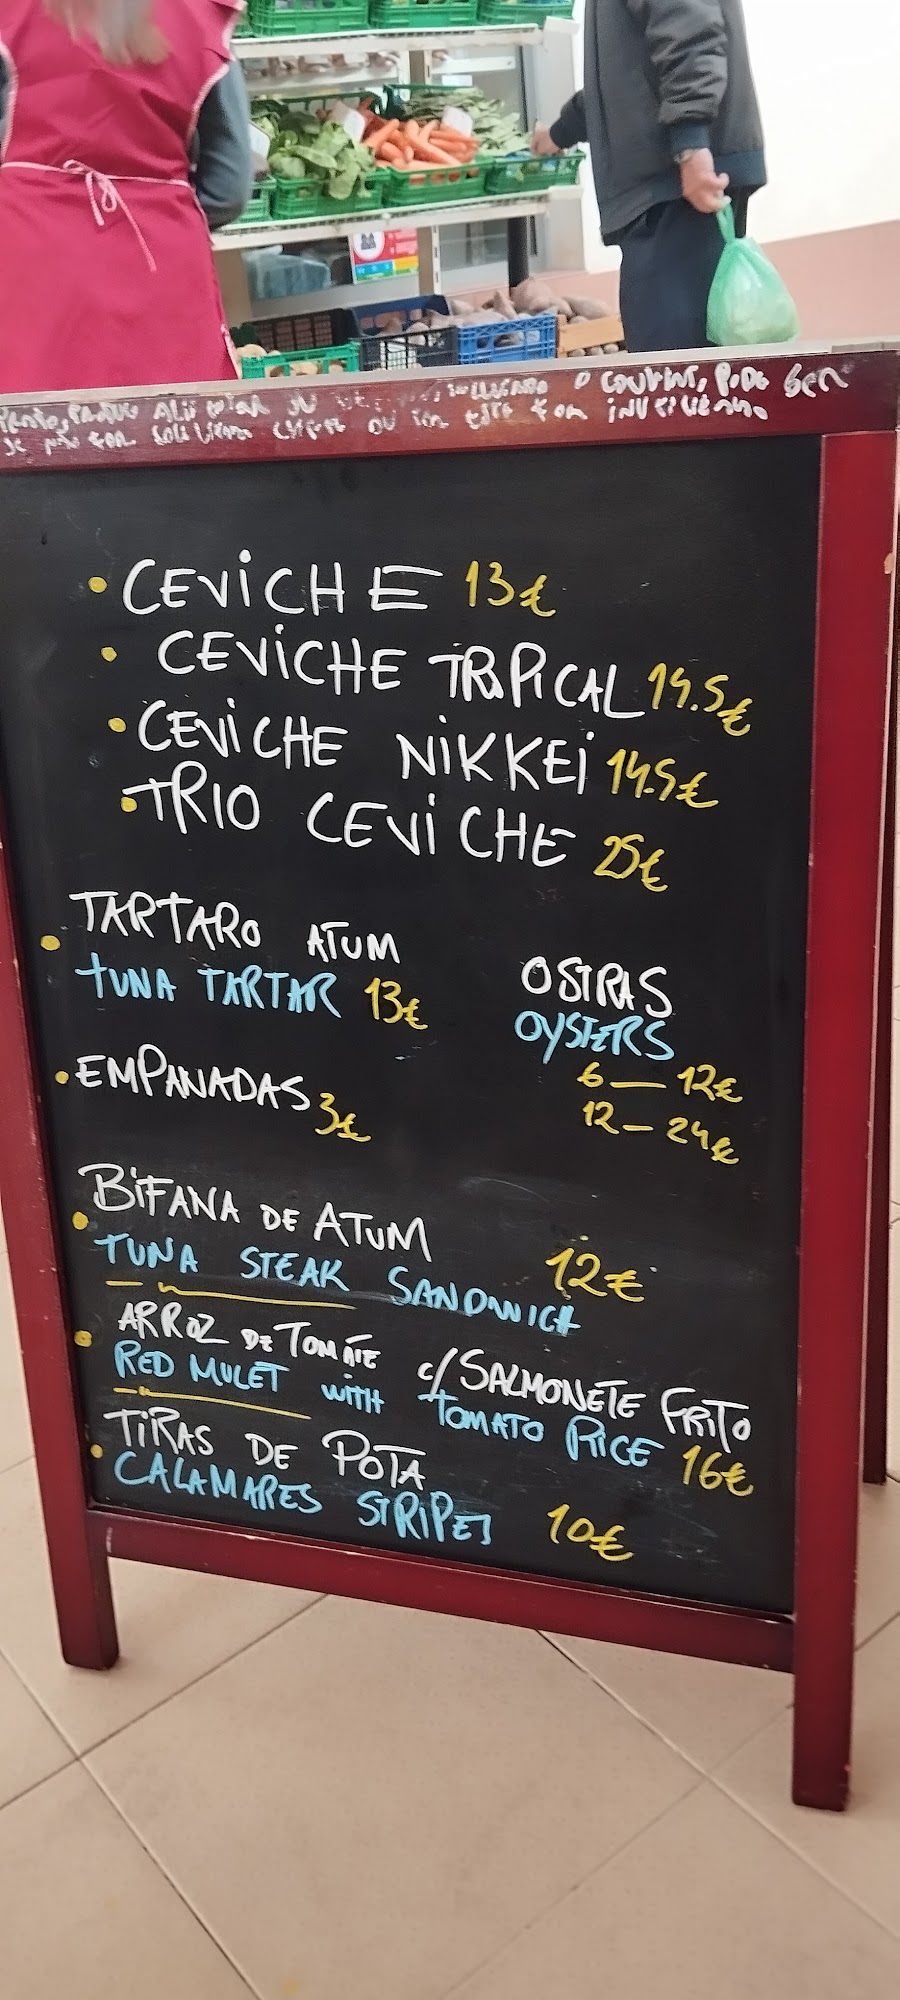 CEVICHE 13€
CEVICHE TROPICAL 14.5€
CEVICHE NIKKEI 14.5€
TRIO CEVICHE 25€
TARTARO ATUM
TUNA TARTAR 13€
OSTRAS
OYSTERS
6 — 12€
12 — 24€
EMPANADAS 3€
BIFANA DE ATUM
TUNA STEAK SANDWICH 12€
ARROZ DE TOMATE c/ SALMONETE FRITO
RED MULET WITH TOMATO RICE 16€
TIRAS DE POTA
CALAMARES STRIPES 10€